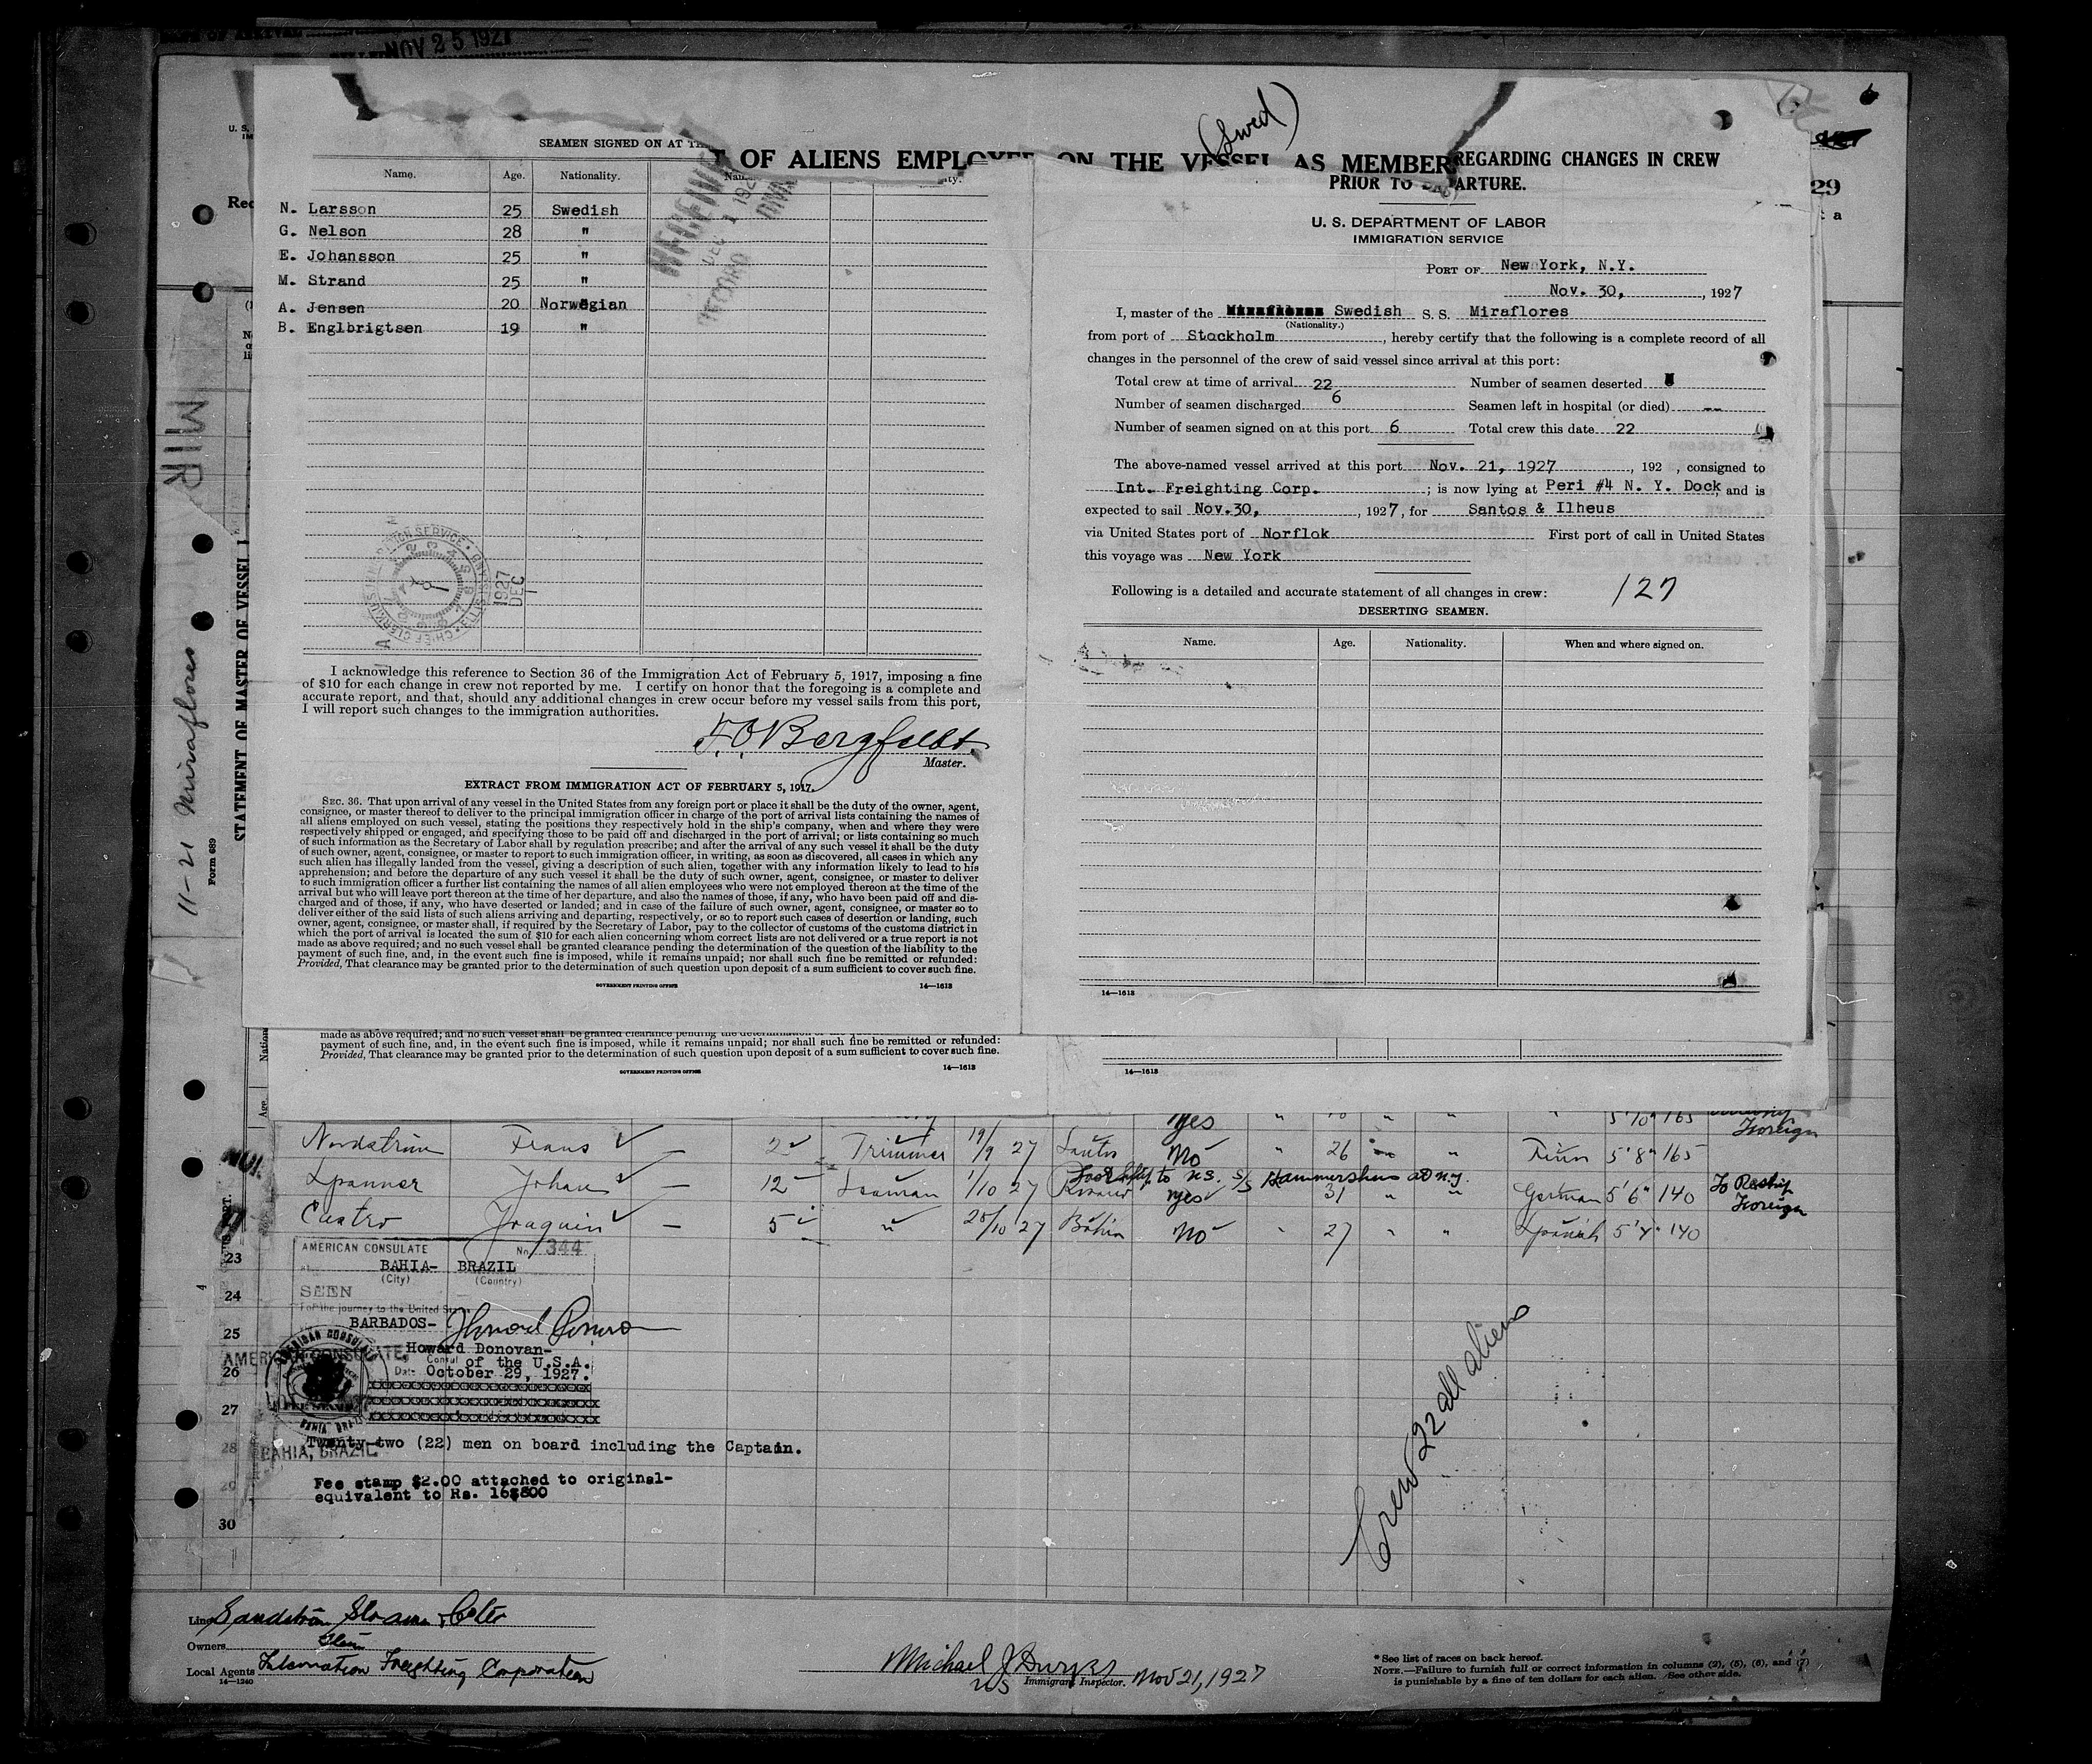 NOV 25 1927
SEAMEN SIGNED ON AT
Name. Age. Nationality.
N. Larsson 25 Swedish
G. Nelson 28 "
E. Johansson 25 "
M. Strand 25 "
A. Jensen 20 Norwegian
B. Englbrigtsen 19 "
I acknowledge this reference to Section 36 of the Immigration Act of February 5, 1917, imposing a fine
of $10 for each change in crew not reported by me. I certify on honor that the foregoing is a complete and
accurate report, and that, should any additional changes in crew occur before my vessel sails from this port,
I will report such changes to the immigration authorities.
Master.
EXTRACT FROM IMMIGRATION ACT OF FEBRUARY 5, 1917.
SEC. 36. That upon arrival of any vessel in the United States from any foreign port or place it shall be the duty of the owner, agent,
consignee, or master thereof to deliver to the principal immigration officer in charge of the port of arrival lists containing the names of
all aliens employed on such vessel, stating the positions they respectively hold in the ship's company, when and where they were
respectively shipped or engaged, and specifying those to be paid off and discharged in the port of arrival; or lists containing so much
of such information as the Secretary of Labor shall by regulation prescribe; and after the arrival of any such vessel it shall be the duty
of such owner, agent, consignee, or master to report to such immigration officer, in writing, as soon as discovered, all cases in which any
such alien has illegally landed from the vessel, giving a description of such alien, together with any information likely to lead to his
apprehension; and before the departure of any such vessel it shall be the duty of such owner, agent, consignee, or master to deliver
to such immigration officer a further list containing the names of all alien employees who were not employed thereon at the time of the
arrival but who will leave port thereon at the time of her departure, and also the names of those, if any, who have been paid off and dis-
charged and of those, if any, who have deserted or landed; and in case of the failure of such owner, agent, consignee, or master so to
deliver either of the said lists of such aliens arriving and departing, respectively, or so to report such cases of desertion or landing, such
owner, agent, consignee, or master shall, if required by the Secretary of Labor, pay to the collector of customs of the customs district in
which the port of arrival is located the sum of $10 for each alien concerning whom correct lists are not delivered or a true report is not
made as above required; and no such vessel shall be granted clearance pending the determination of the question of the liability to the
payment of such fine, and, in the event such fine is imposed, while it remains unpaid; nor shall such fine be remitted or refunded:
Provided, That clearance may be granted prior to the determination of such question upon deposit of a sum sufficient to cover such fine.
GOVERNMENT PRINTING OFFICE 14—1613
(Swed)
OF ALIENS EMPLOYED ON THE VESSEL AS MEMBER
REGARDING CHANGES IN CREW
PRIOR TO DEPARTURE.
U. S. DEPARTMENT OF LABOR
IMMIGRATION SERVICE
PORT OF New York, N.Y.
Nov. 30, , 1927
I, master of the Swedish S. S. Miraflores
(Nationality.)
from port of Stockholm, hereby certify that the following is a complete record of all
changes in the personnel of the crew of said vessel since arrival at this port:
Total crew at time of arrival 22 Number of seamen deserted
Number of seamen discharged 6 Seamen left in hospital (or died) --
Number of seamen signed on at this port 6 Total crew this date 22
The above-named vessel arrived at this port Nov. 21, 1927, 192 , consigned to
Int. Freighting Corp. ; is now lying at Peri #4 N. Y. Dock, and is
expected to sail Nov.30, , 1927, for Santos & Ilheus
via United States port of Norflok First port of call in United States
this voyage was New York
Following is a detailed and accurate statement of all changes in crew: 127
DESERTING SEAMEN.
Name. Age. Nationality. When and where signed on.
14—1613
MIR
11-21 Miraflores
Form 689
STATEMENT OF MASTER OF VESSEL
29
made as above required; and no such vessel shall be granted clearance pending the
payment of such fine, and, in the event such fine is imposed, while it remains unpaid; nor shall such fine be remitted or refunded:
Provided, That clearance may be granted prior to the determination of such question upon deposit of a sum sufficient to cover such fine.
GOVERNMENT PRINTING OFFICE 14—1613
14—1613
Age.
yes 5'10" 165 Foreign
Nordström Frans — 2 Trimmer 19/9 27 Santos No " 26 " Finn 5'8" 165
to U.S. S/S Hammershus at N.Y.
Johan — 12 Seaman 1/10 27 yes 31 " " German 5'6" 140 To Reship Foreign
Castro Joaquin — 5 " 25/10 27 Bahia No " 27 " " Spanish 5'4" 140
AMERICAN CONSULATE No. 344
BAHIA- BRAZIL
(City) (Country)
SEEN
For the journey to the United States
BARBADOS-
Howard Donovan-
Consul of the U.S.A.
Date October 29, 1927.
AMERICAN CONSULATE,
BAHIA, BRAZIL
Twenty-two (22) men on board including the Captain.
Fee stamp $2.00 attached to original-
equivalent to Rs. 16$800
23
24
25
26
27
28
29
30
Crew 22 all aliens
Line
Owners
Local Agents Internation Freighting Corporation
14—1240
Immigrant Inspector. Nov 21, 1927
* See list of races on back hereof.
NOTE.—Failure to furnish full or correct information in columns (2), (5), (6), and (7)
is punishable by a fine of ten dollars for each alien. See other side.